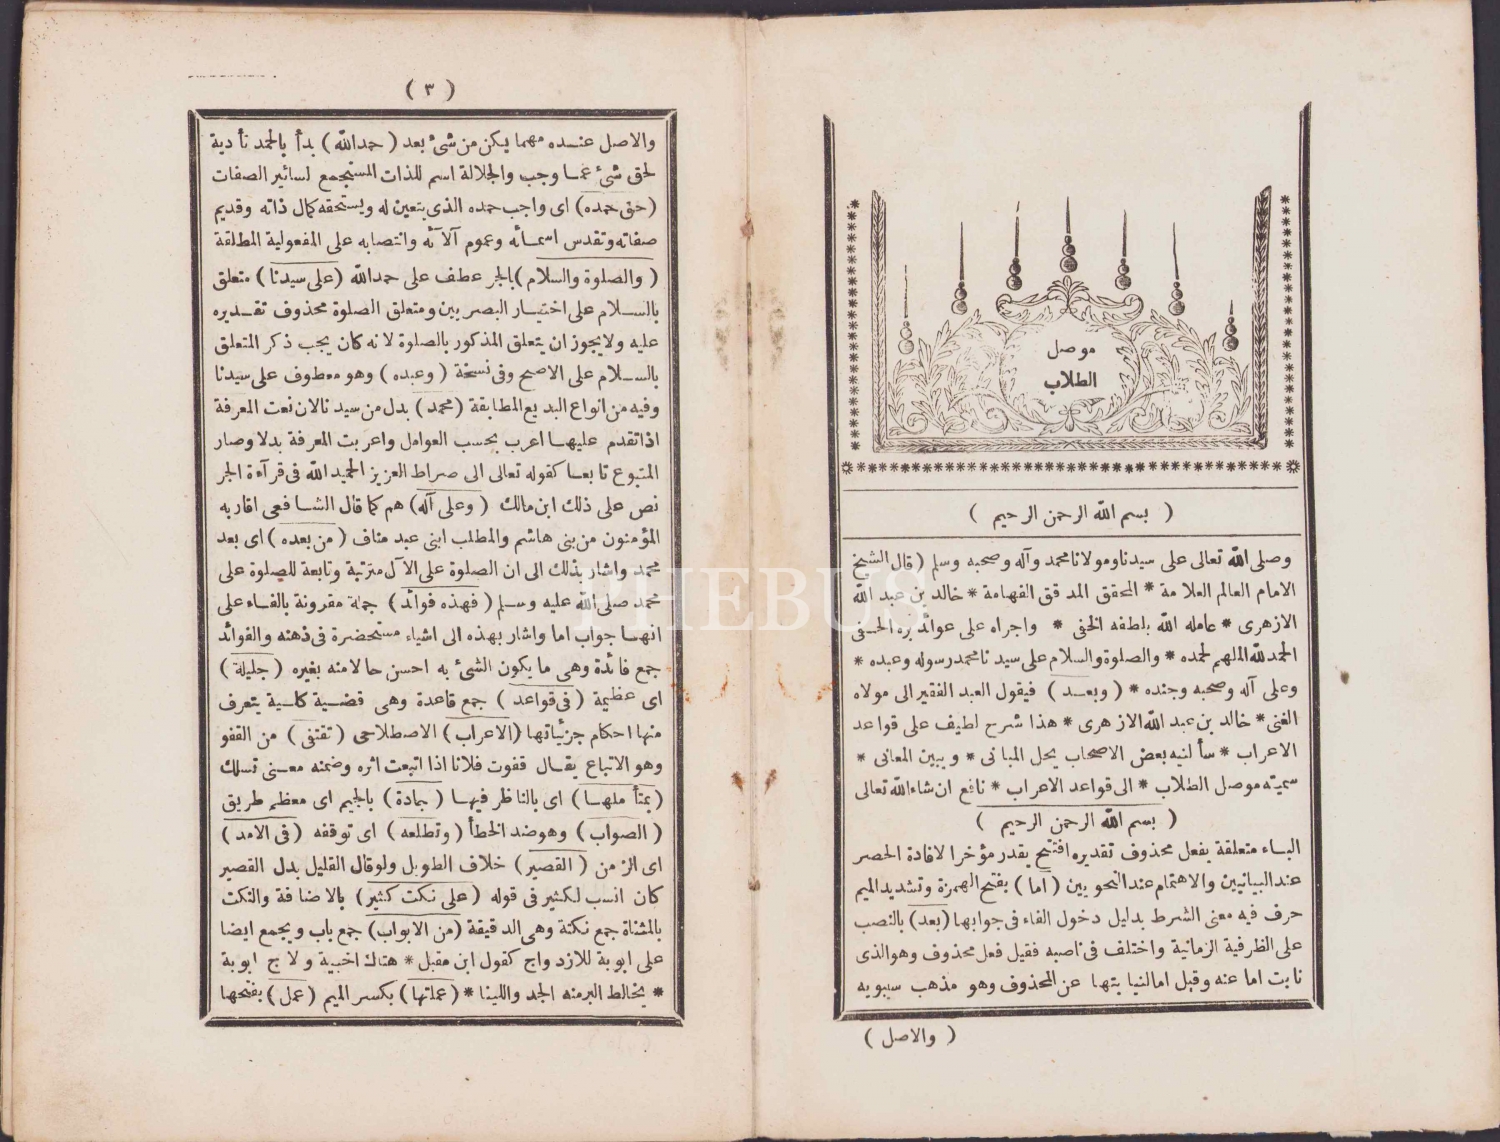 موصل
الطلاب
( بسم الله الرحمن الرحيم )
وصلى الله تعالى على سيدنا ومولانا محمد وآله وصحبه وسلم ( قال الشيخ
الامام العالم العلامة * المحقق المدقق الفهامة * خالد بن عبد الله
الازهرى * عامله الله بلطفه الخفى * واجراه على عوائد بره الحفى
الحمد لله الملهم لحمده * والصلوة والسلام على سيدنا محمد رسوله وعبده *
وعلى آله وصحبه وجنده * ( وبعد ) فيقول العبد الفقير الى مولاه
الغنى * خالد بن عبد الله الازهرى * هذا شرح لطيف على قواعد
الاعراب * سألنيه بعض الاصحاب يحل المبانى * ويبين المعانى *
سميته موصل الطلاب * الى قواعد الاعراب * نافع ان شاء الله تعالى
( بسم الله الرحمن الرحيم )
الباء متعلقة بفعل محذوف تقديره افتتح يقدر مؤخرا لافادة الحصر
عند البيانيين والاهتمام عند النحويين ( اما ) بفتح الهمزة وتشديد الميم
حرف فيه معنى الشرط بدليل دخول الفاء فى جوابها ( بعد ) بالنصب
على الظرفية الزمانية واختلف فى ناصبه فقيل فعل محذوف وهو الذى
نابت اما عنه وقيل اما لنيابتها عن المحذوف وهو مذهب سيبويه
( والاصل )
( ٣ )
والاصل عنده مهما يكن من شئ بعد ( حمد الله ) بدأ بالحمد تأدية
لحق شئ عما وجب والجلالة اسم للذات المستجمع لسائر الصفات
( حق حمده ) اى واجب حمده الذى يتعين له ويستحقه كمال ذاته وقديم
صفاته وتقدس اسمائه وعموم آلائه وانتصابه على المفعولية المطلقة
( والصلوة والسلام ) بالجر عطف على حمد الله ( على سيدنا ) متعلق
بالسلام على اختيار البصريين ومتعلق الصلوة محذوف تقديره
عليه ولا يجوز ان يتعلق المذكور بالصلوة لانه كان يجب ذكر المتعلق
بالسلام على الاصح وفى نسخة ( وعبده ) وهو معطوف على سيدنا
وفيه من انواع البديع المطابقة ( محمد ) بدل من سيدنا لان نعت المعرفة
اذا تقدم عليها اعرب بحسب العوامل واعربت المعرفة بدلا وصار
المتبوع تابعا كقوله تعالى الى صراط العزيز الحميد الله فى قرآءة الجر
نص على ذلك ابن مالك ( وعلى آله ) هم كما قال الشافعى اقاربه
المؤمنون من بنى هاشم والمطلب ابنى عبد مناف ( من بعده ) اى بعد
محمد واشار بذلك الى ان الصلوة على الآل مترتبة وتابعة للصلوة على
محمد صلى الله عليه وسلم ( فهذه فوائد ) جملة مقرونة بالفاء على
انها جواب اما واشار بهذه الى اشياء مستحضرة فى ذهنه والفوائد
جمع فائدة وهى ما يكون الشئ به احسن حالا منه بغيره ( جليلة )
اى عظيمة ( فى قواعد ) جمع قاعدة وهى قضية كلية يتعرف
منها احكام جزئياتها ( الاعراب ) الاصطلاحى ( تقتفى ) من القفو
وهو الاتباع يقال قفوت فلانا اذا اتبعت اثره وضمنه معنى تسلك
( بمتأملها ) اى بالناظر فيها ( بجادة ) بالجيم اى معظم طريق
( الصواب ) وهو ضد الخطأ ( وتطلعه ) اى توقفه ( فى الامد )
اى الزمن ( القصير ) خلاف الطويل ولو قال القليل بدل القصير
كان انسب لكثير فى قوله ( على نكت كثير ) بالاضافة والنكت
بالمثناة جمع نكتة وهى الدقيقة ( من الابواب ) جمع باب ويجمع ايضا
على ابوبة للازدواج كقول ابن مقبل * هتاك اخبية ولاج ابوبة
* يخالط البر منه الجد واللينا * ( عملتها ) بكسر الميم ( عمل ) بفتحها
PHEBUS